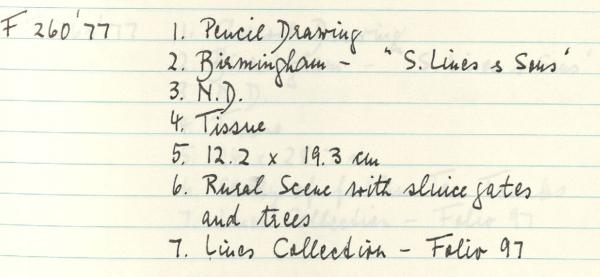 F 260'77 1. Pencil Drawing
2. Birmingham - "S. Lines & Sons"
3. N.D.
4. Tissue
5. 12.2 x 19.3 cm
6. Rural Scene with sluice gates
and trees
7. Lines Collection - Folio 97